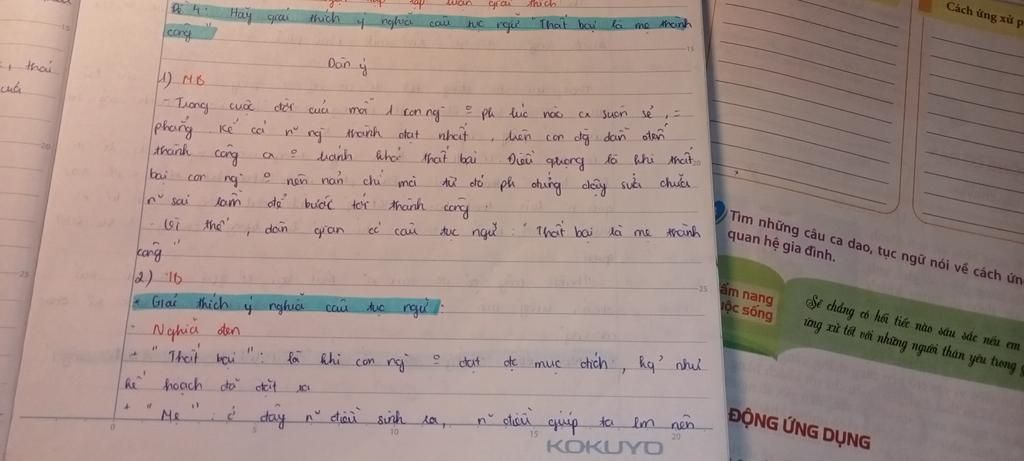 lập luận giải thích
Đề 4: Hãy giải thích ý nghĩa câu tục ngữ "Thất bại là mẹ thành
công"
Dàn ý
1) MB
- Trong cuộc đời của mỗi 1 con ng o ph lúc nào cx suôn sẻ, =
phẳng Kể cả n~ ng thành đạt nhất, trên con đg dẫn đến
thành công cx o tránh khỏi thất bại Điều qtrọng là khi thất
bại con ng o nên nản chí mà từ đó ph đứng dậy sửa chữa
n~ sai lầm để bước tới thành công.
- Vì thế, dân gian có câu tục ngữ: "Thất bại là mẹ thành
công"
2) TB
* Giải thích ý nghĩa câu tục ngữ:
- Nghĩa đen
+ "Thất bại": là khi con ng o đạt đc mục đích, kq' như
kế hoạch đã đặt ra
+ "Mẹ": ở đây n~ điều sinh ra, n~ điều giúp ta lm nên
KOKUYO
, thái
của
Cách ứng xử p
Tìm những câu ca dao, tục ngữ nói về cách ứn
quan hệ gia đình.
ẩm nang
ộc sống
Sẽ chẳng có hối tiếc nào sâu sắc nếu em
ứng xử tốt với những người thân yêu trong g
ĐỘNG ỨNG DỤNG